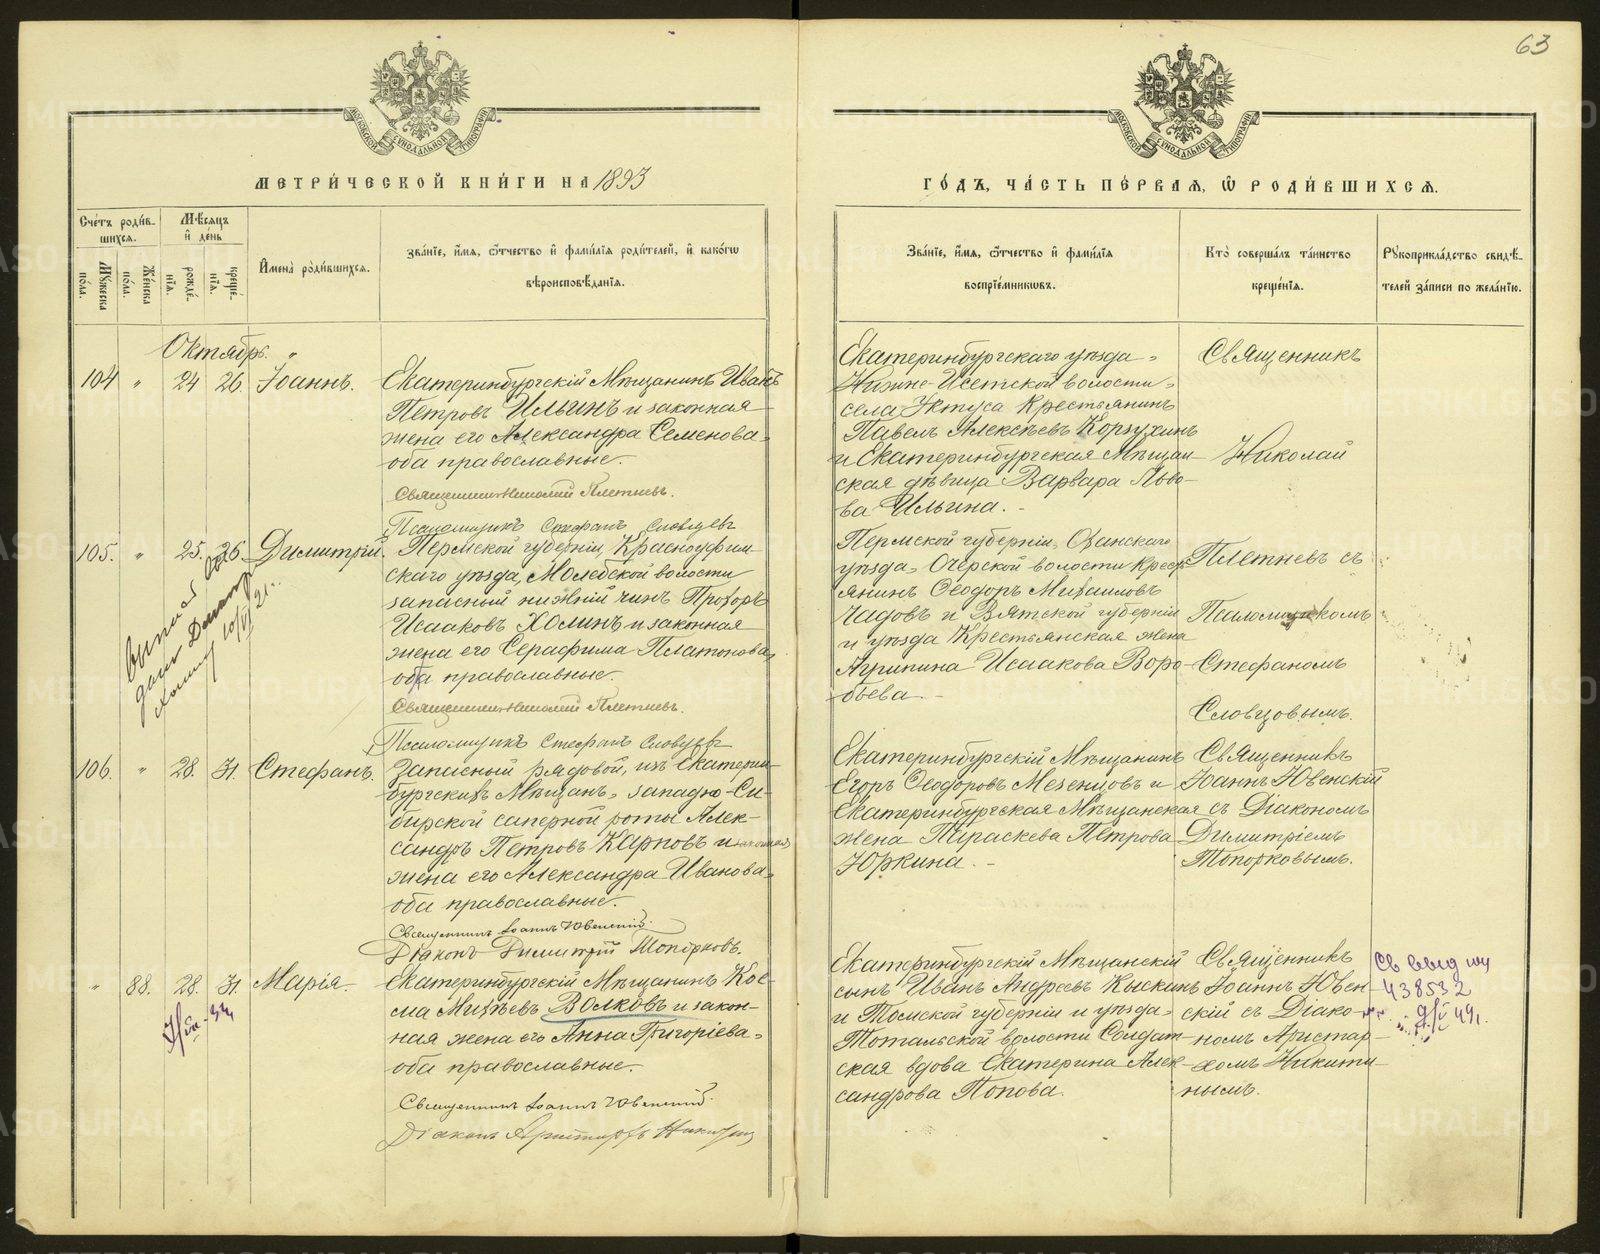 63
МОСКОВСКОЙ СѴНОДАЛЬНОЙ ТИПОГРАФІИ
МОСКОВСКОЙ СѴНОДАЛЬНОЙ ТИПОГРАФІИ
МЕТРИ́ЧЕСКОЙ КНИ́ГИ НА 1893
ГО́ДЪ, ЧА́СТЬ ПЕ́РВАЯ, Ѡ РОДИ́ВШИХСЯ.
Сче́тъ роди́в-
шихся.
Мѣ́сяцъ
и҆ де́нь
Мꙋжеска по́ла.
Же́нска по́ла.
рожде́-нїя.
креще́-нїя.
И҆мена̀ роди́вшихся.
Зва́нїе, и҆́мя, ѻ҆́тчество и҆ фами́лїя роди́телей, и҆ како́гѡ
вѣроисповѣ́данїя.
Зва́нїе, и҆́мя, ѻ҆́тчество и҆ фами́лїя
воспрїе́мникѡвъ.
Кто̀ соверша́лъ та́инство
креще́нїя.
Рꙋкоприкла́дство свидѣ́-
телей за́писи по жела́нїю.
Октябрь. "
104 " 24 26. Іоаннъ.
Екатеринбургскій Мѣщанинъ Иванъ
Петровъ Ильинъ и законная
жена его Александра Семенова,
оба православные.
Священникъ Николай Плетневъ.
Псаломщикъ Стефанъ Словцевъ
Екатеринбургскаго уѣзда
Нижне-Исетской волости
села Уктуса Крестьянинъ
Павелъ Алексѣевъ Корзухинъ
и Екатеринбургская Мѣщан-
ская дѣвица Варвара Льво-
ва Ильина.
Священникъ
Николай
105. " 25. 26. Димитрій.
Пермской губерніи, Красноуфим-
скаго уѣзда, Молебской волости
запасный нижній чинъ Прохоръ
Исааковъ Холинъ и законная
жена его Серафима Платонова,
оба православные.
Священникъ Николай Плетневъ.
Псаломщикъ Стефанъ Словцевъ
Пермской губерніи, Оханскаго
уѣзда, Очерской волости Крест-
янинъ Ѳеодоръ Михаиловъ
Чадовъ и Вятской губерніи
и уѣзда Крестьянская жена
Агрипина Исаакова Воро-
бьева.
Плетневъ съ
Псаломщикомъ
Стефаномъ
Словцовымъ.
106. " 28. 31. Стефанъ.
Запасный рядовой, изъ Екатерин-
бургскихъ Мѣщанъ, западно-Си-
бирской саперной роты Алек-
сандръ Петровъ Карповъ и законная
жена его Александра Иванова,
оба православные.
Священникъ Іоаннъ Ювенскій.
Діаконъ Димитрій Топорковъ.
Екатеринбургскій Мѣщанинъ
Егоръ Ѳеодоровъ Мезенцовъ и
Екатеринбургская Мѣщанская
жена Параскева Петрова
Юркина.
Священникъ
Іоаннъ Ювенскій
съ Діакономъ
Димитріемъ
Топорковымъ.
" 88. 28. 31. Марія.
Екатеринбургскій Мѣщанинъ Кос-
ма Михѣевъ Волковъ и закон-
ная жена его Анна Григоріева,
оба православные.
Священникъ Іоаннъ Ювенскій.
Діаконъ Аристархъ Никитинъ
Екатеринбургскій Мѣщанскій
сынъ Иванъ Андреевъ Кыскинъ
и Томской губерніи и уѣзда
Тотальской волости Солдат-
ская вдова Екатерина Алек-
сандрова Попова.
Священникъ
Іоаннъ Ювен-
скій съ Діако-
номъ Аристар-
хомъ Никити-
нымъ.
438532